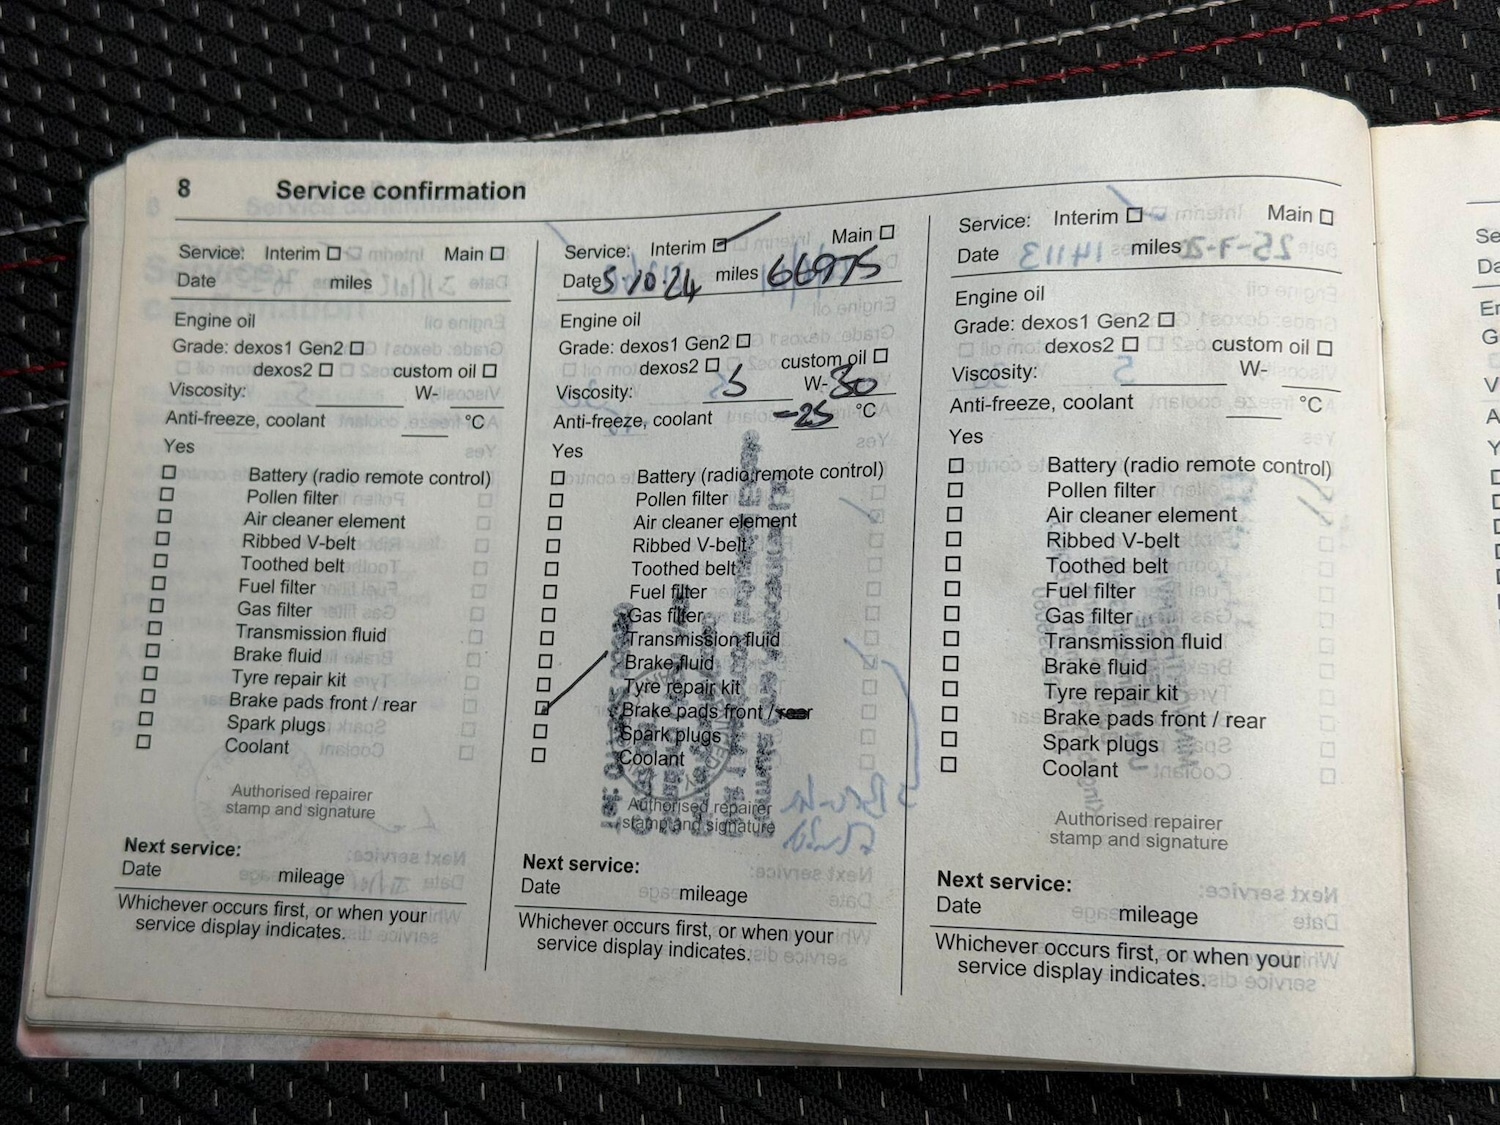 8 Service confirmation
Service: Interim Main
Date miles
Engine oil
Grade: dexos1 Gen2
dexos2 custom oil
Viscosity: W-
Anti-freeze, coolant °C
Yes
Battery (radio remote control)
Pollen filter
Air cleaner element
Ribbed V-belt
Toothed belt
Fuel filter
Gas filter
Transmission fluid
Brake fluid
Tyre repair kit
Brake pads front / rear
Spark plugs
Coolant
Authorised repairer
stamp and signature
Next service:
Date mileage
Whichever occurs first, or when your
service display indicates.
Service: Interim Main
Date 5/10.24 miles 66975
Engine oil
Grade: dexos1 Gen2
dexos2 custom oil
Viscosity: 5 W-30
Anti-freeze, coolant -25 °C
Yes
Battery (radio remote control)
Pollen filter
Air cleaner element
Ribbed V-belt
Toothed belt
Fuel filter
Gas filter
Transmission fluid
Brake fluid
Tyre repair kit
Brake pads front / rear
Spark plugs
Coolant
Authorised repairer
stamp and signature
Next service:
Date mileage
Whichever occurs first, or when your
service display indicates.
Service: Interim Main
Date miles
Engine oil
Grade: dexos1 Gen2
dexos2 custom oil
Viscosity: W-
Anti-freeze, coolant °C
Yes
Battery (radio remote control)
Pollen filter
Air cleaner element
Ribbed V-belt
Toothed belt
Fuel filter
Gas filter
Transmission fluid
Brake fluid
Tyre repair kit
Brake pads front / rear
Spark plugs
Coolant
Authorised repairer
stamp and signature
Next service:
Date mileage
Whichever occurs first, or when your
service display indicates.